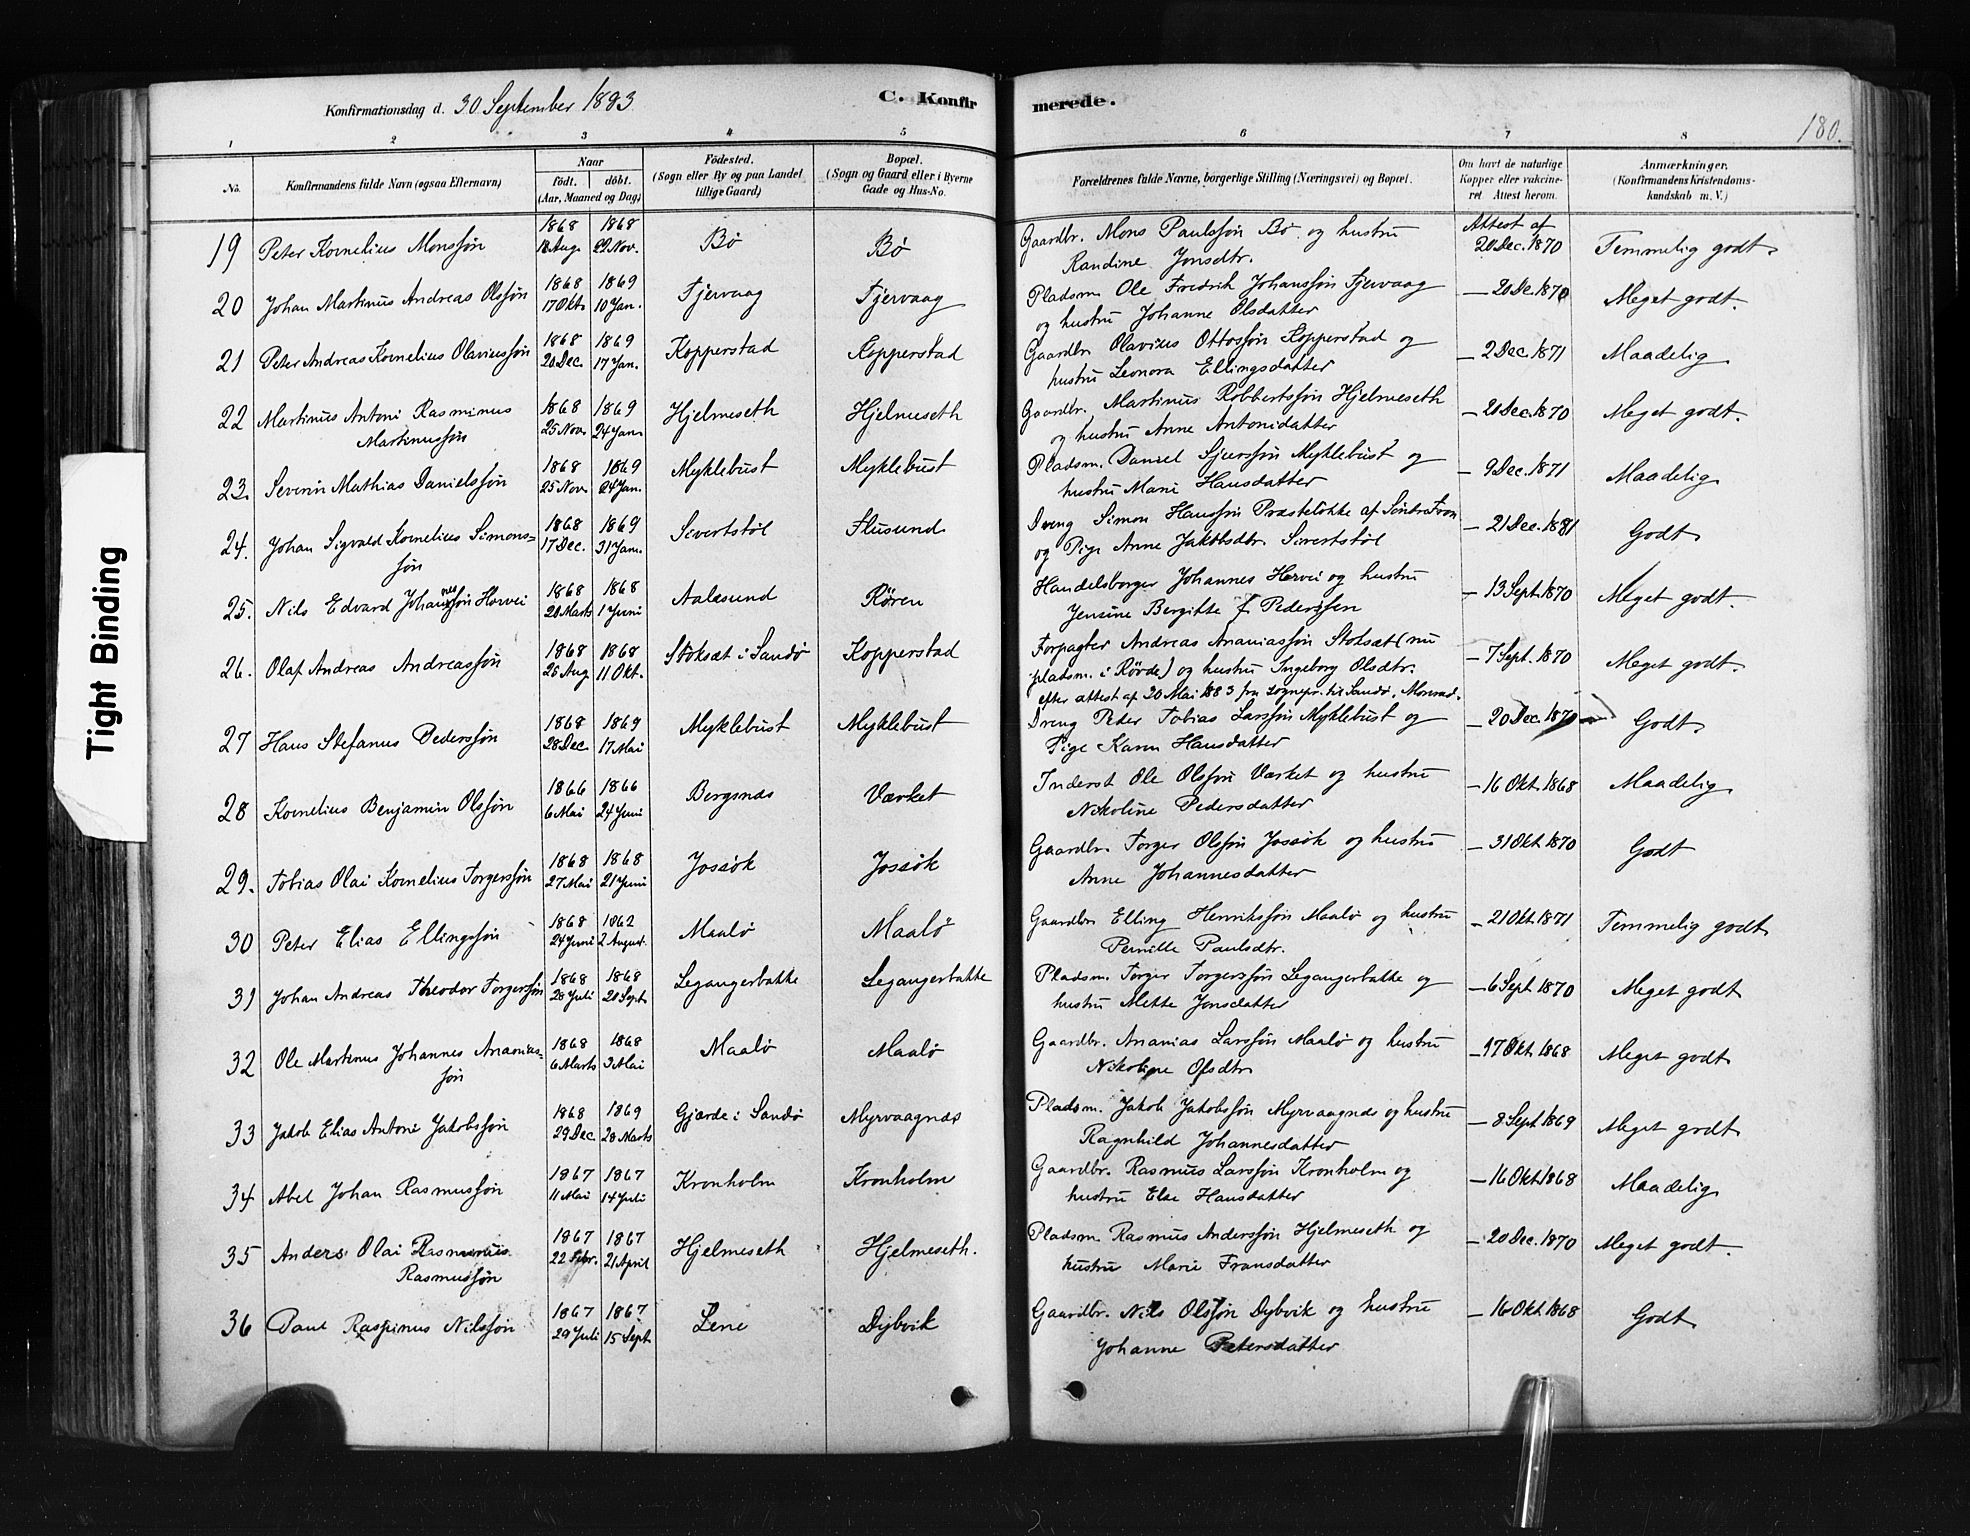 Konfirmationsdag d. 30 September 1883 C. Konfirmerede. 180.
1 2 3 4 5 6 7 8
No. Konfirmandens fulde Navn (ogsaa Efternavn) Naar födt. döbt. (Aar, Maaned og Dag) Födested. (Sogn eller By og paa Landet tillige Gaard) Bopæl. (Sogn og Gaard eller i Byerne Gade og Hus-No. Forældrenes fulde Navne, borgerlige Stilling (Næringsvei) og Bopæl. Om havt de naturlige Kopper eller vakcineret. Attest herom. Anmærkninger. (Konfirmandens Kristendomskundskab m. V.)
19 Peter Kornelius Monssøn 1868 18 Aug. 1868 29 Nov. Bø Bø Gaardbr. Mons Paulssøn Bø og hustru Attest af 20 Dec. 1870 Temmelig godt
Randine Jonsdtr.
20 Johan Martinus Andreas Olssøn 1868 17 Okt. 1869 10 Jan. Tjervaag Tjervaag Pladsm. Ole Fredrik Johanssøn Tjervaag — 20 De. 1870 Meget godt.
og hustru Johanne Olsdatter
21 Peter Andreas Kornelius Olaviussøn 1868 20 Dec. 1869 17 Jan. Kopperstad Kopperstad Gaardbr. Olavius Ottossøn Kopperstad og — 2 Dec. 1871 Maadelig
hustru Leonora Ellingsdatter
22 Martinus Antoni Rasminus 1868 25 Nov. 1869 24 Jan. Hjelmeseth Hjelmeseth Gaardbr. Martinus Robbertssøn Hjelmeseth — 20 Dec. 1870 Meget godt.
Martinussøn og hustru Anne Antonidatter
23. Severin Mathias Danielssøn 1868 25 Nov. 1869 24 Jan. Myklebust Myklebust Pladsm. Daniel Sjurssøn Myklebust og — 9 Dec. 1871 Maadelig
hustru Marie Hansdatter
24. Johan Sigvald Kornelius Simons- 1868 17 Dec. 1869 31 Jan. Sivertstøl Flusund Dreng Simon Hanssøn Præsteløkke af Søndre Fron — 21 Dec. 1881 Godt
søn og Pige Anne Jakobsdtr. Sivertstøl
25. Nils Edvard Johannessøn Horvei 1868 20 Marts 1868 1 Juni Aalesund Røren Handelsborger Johannes Horvei og hustru — 13 Sept. 1870 Meget godt.
Jensine Bergitte f. Pederssen
26. Olaf Andreas Andreassøn 1868 25 Aug 1868 11 Okt. Stoksæt i Sandø Kopperstad Forpagter Andreas Ananiassøn Stoksæt (nu — 7 Sept. 1870 Meget godt.
pladsm. i Røvde) og hustru Ingeborg Olsdtr.
efter attest af 20 Mai 1883 fra sognepr. til Sandø, Monrad.
27 Hans Stefanus Pederssøn 1868 28 Dec. 1869 17 Mai Myklebust Myklebust Dreng Peder Tobias Larssøn Myklebust og — 20 Dec. 1870 Godt
Pige Karen Hansdatter
28 Kornelius Benjamin Olssøn 1866 6 Mai 1866 24 Juni Bergsnæs Værket Inderst Ole Olssøn Værket og hustru — 16 Okt. 1868 Maadelig
Nikoline Pedersdatter
29. Tobias Olai Kornelius Torgerssøn 1868 27 Mai 1868 21 Juni Jossøk Jossøk Gaardbr. Torger Olssøn Jossøk og hustru — 31 Okt. 1870 Godt
Anne Johannesdatter
30 Peter Elias Ellingssøn 1868 24 Juni 1862 2 August. Maalø Maalø Gaardbr. Elling Henrikssøn Maalø og hustru — 21 Okt. 1871 Temmelig godt
Pernille Paulsdtr.
31 Johan Andreas Theodor Torgerssøn 1868 28 Juli 1868 20 Sept. Legangerbakke Legangerbakke Pladsm. Torger Torgerssøn Legangerbakke og — 6 Sept. 1870 Meget godt
hustru Mette Jonsdatter
32 Ole Martinus Johannes Ananias- 1868 6 Marts 1868 3 Mai Maalø Maalø Gaardbr. Ananias Larssøn Maalø og hustru — 17 Okt. 1868 Meget godt
søn Nikoline Olsdtr
33 Jakob Elias Antoni Jakobssøn 1868 29 Dec 1869 28 Marts Gjærde i Sandø Myrvaagnæs Pladsm. Jakob Jakobssøn Myrvaagnæs og hustru — 8 Sept. 1869 Meget godt
Ragnhild Johannesdatter
34 Abel Johan Rasmussøn 1867 11 Mai 1867 14 Juli Kronholm Kronholm Gaardbr. Rasmus Larssøn Kronholm og — 16 Okt. 1868 Maadelig
hustru Else Hansdatter
35 Anders Olai Rasmus 1867 22 Febr. 1867 21 April Hjelmeseth Hjelmeseth. Pladsm. Rasmus Anderssøn Hjelmeseth og — 20 Dec. 1870 Meget godt.
Rasmussøn hustru Marie Fransdatter
36 Paul Rasminus Nilssøn 1867 29 Juli 1867 15 Sept. Lene Dybvik Gaardbr. Nils Olssøn Dybvik og hustru — 16 Okt. 1868 Godt
Johanne Petersdatter
Tight Binding